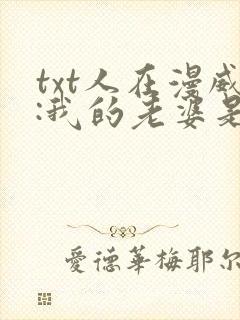 txt人在漫威
:我的老婆是
愛德華梅耶尔